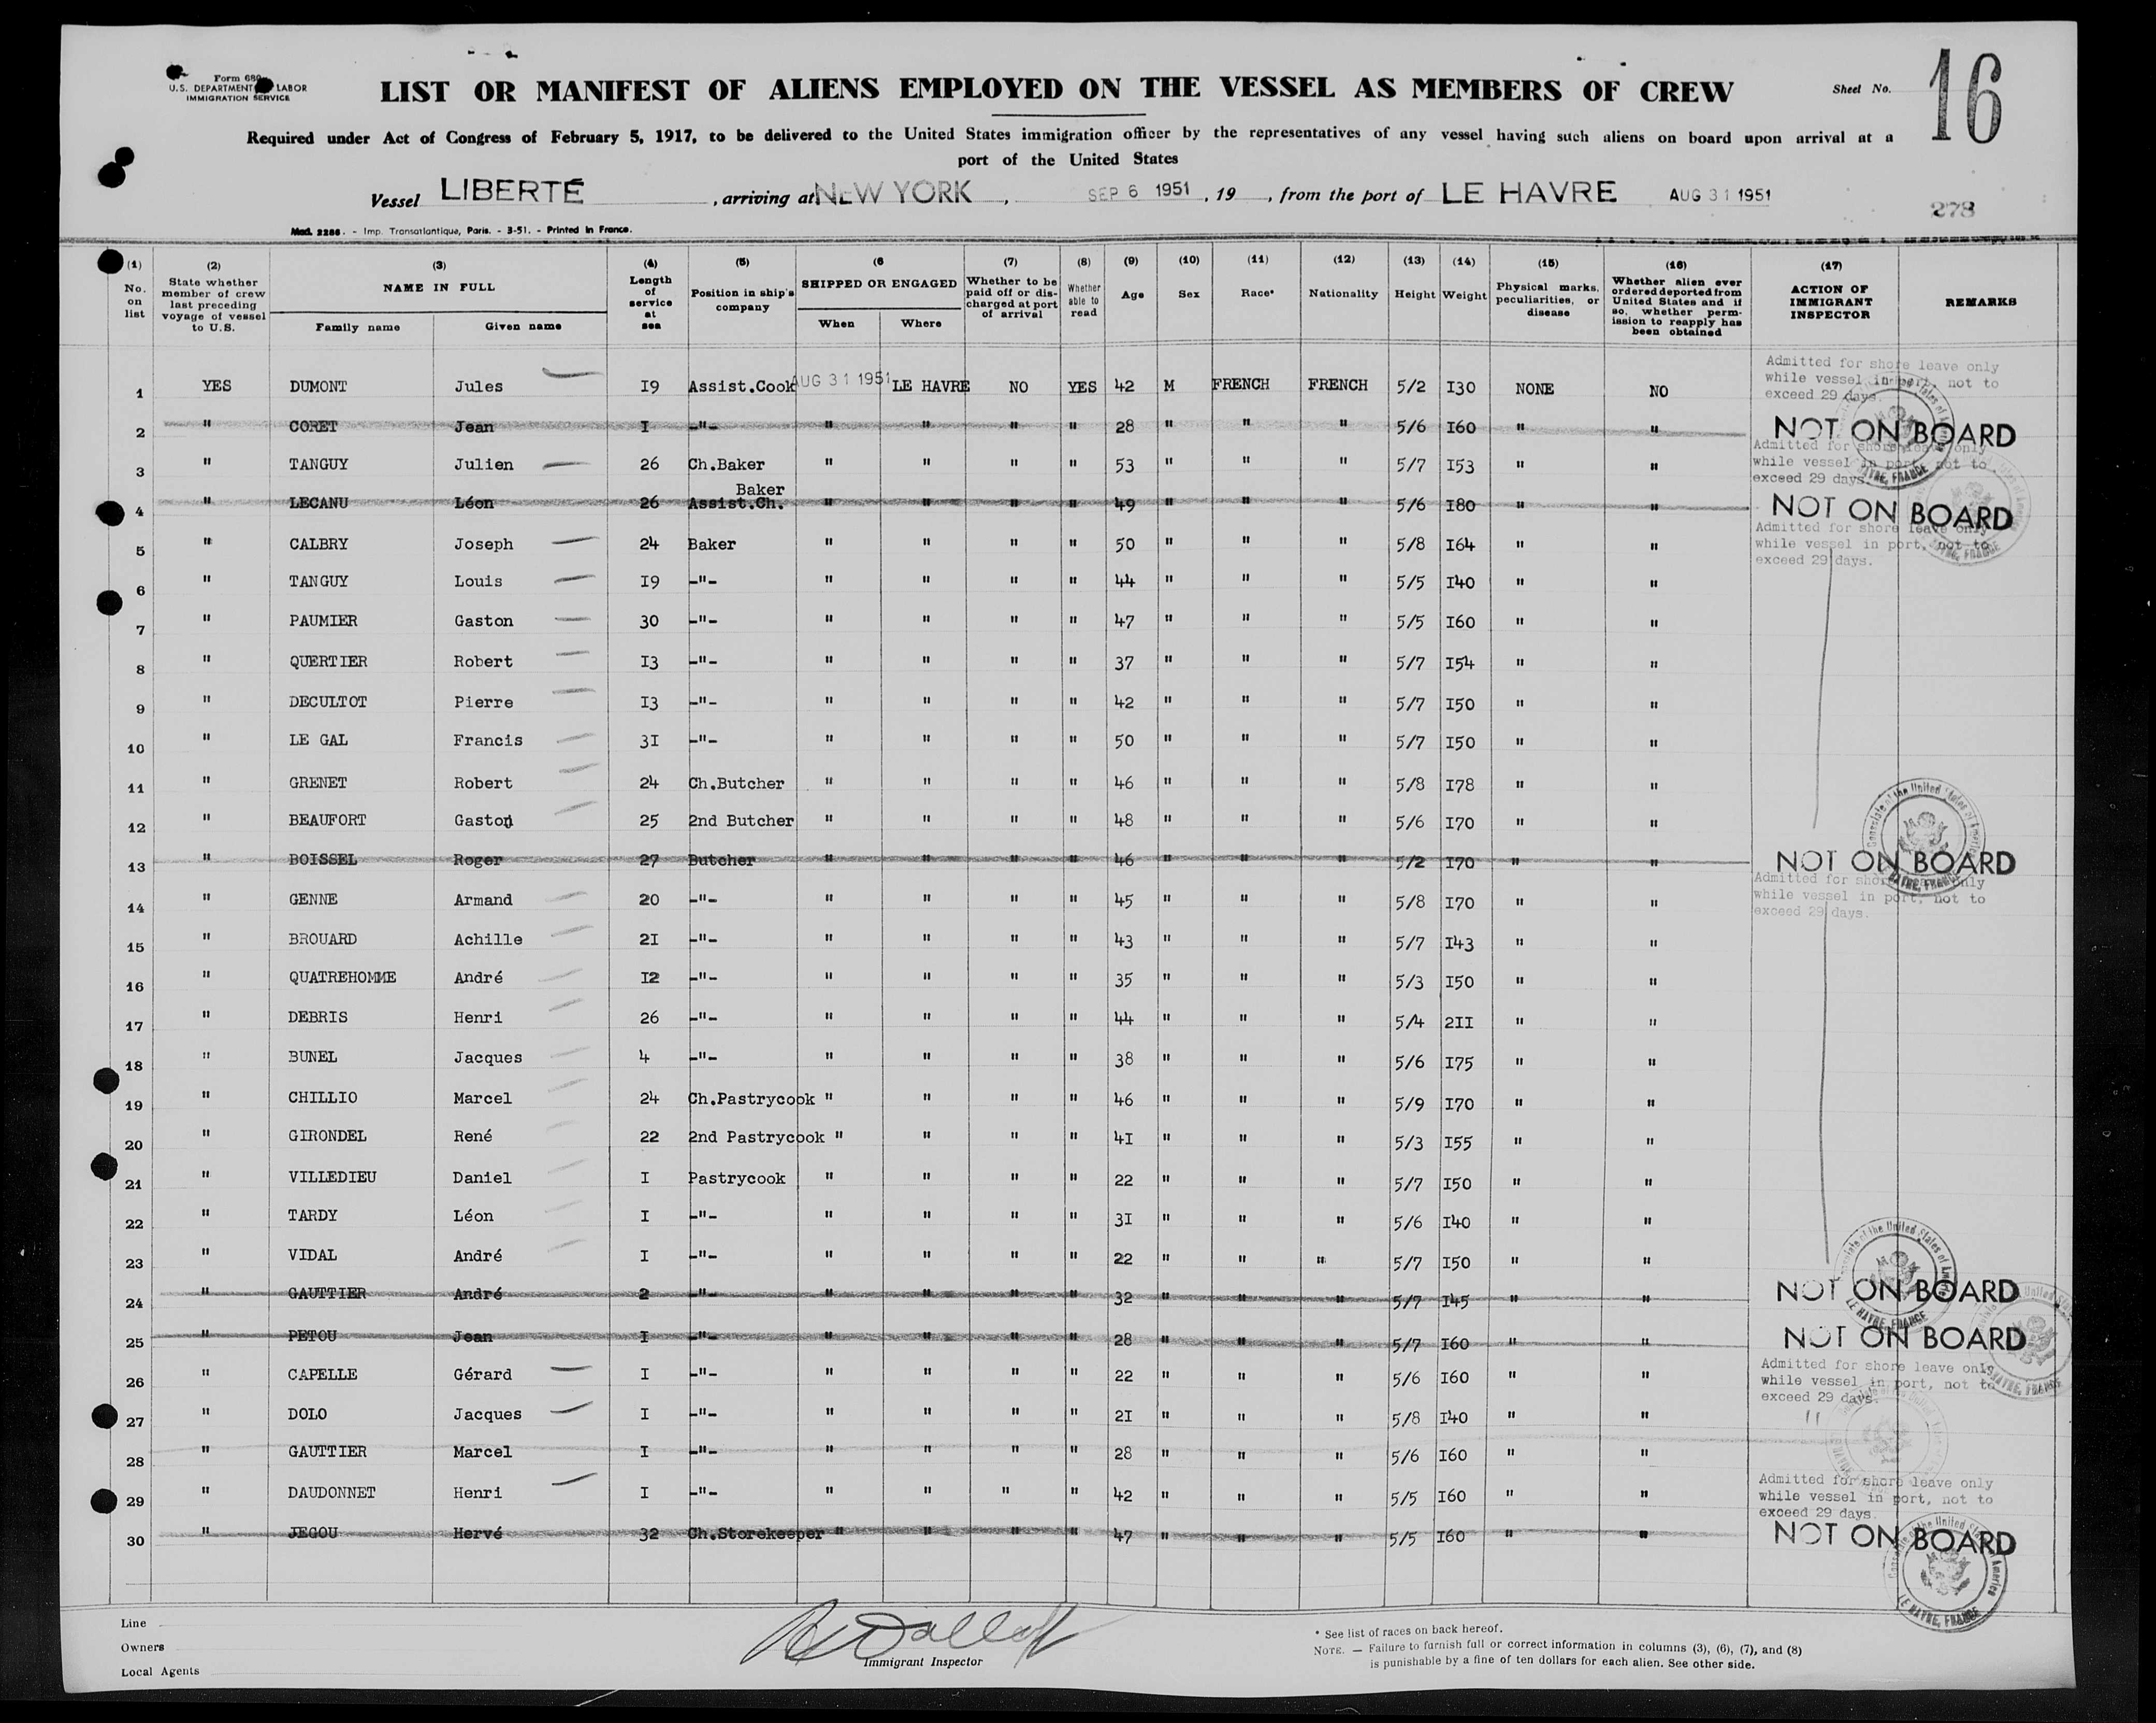 Form 680
U.S. DEPARTMENT LABOR
IMMIGRATION SERVICE
LIST OR MANIFEST OF ALIENS EMPLOYED ON THE VESSEL AS MEMBERS OF CREW
Sheet No. 16
Required under Act of Congress of February 5, 1917, to be delivered to the United States immigration officer by the representatives of any vessel having such aliens on board upon arrival at a
port of the United States
Vessel LIBERTÉ, arriving at NEW YORK, SEP 6 1951, 19 , from the port of LE HAVRE AUG 31 1951
278
Mod. 2286. - Imp. Transatlantique, Paris. - 3-51. - Printed in France.
(1) No. on list
(2) State whether member of crew last preceding voyage of vessel to U.S.
(3) NAME IN FULL Family name Given name
(4) Length of service at sea
(5) Position in ship's company
(6 SHIPPED OR ENGAGED When Where
(7) Whether to be paid off or discharged at port of arrival
(8) Whether able to read
(9) Age
(10) Sex
(11) Race*
(12) Nationality
(13) Height
(14) Weight
(15) Physical marks, peculiarities, or disease
(16) Whether alien ever ordered deported from United States and if so, whether permission to reapply has been obtained
(17) ACTION OF IMMIGRANT INSPECTOR
REMARKS
1 YES DUMONT Jules I9 Assist.Cook AUG 31 1951 LE HAVRE NO YES 42 M FRENCH FRENCH 5/2 I30 NONE NO Admitted for shore leave only while vessel in port, not to exceed 29 days.
2 " CORET Jean I -"- " " " " 28 " " " 5/6 I60 " " NOT ON BOARD
3 " TANGUY Julien 26 Ch.Baker " " " " 53 " " " 5/7 I53 " " Admitted for shore leave only while vessel in port, not to exceed 29 days.
4 " LECANU Léon 26 Assist.Ch. Baker " " " " 49 " " " 5/6 I80 " " NOT ON BOARD
5 " CALBRY Joseph 24 Baker " " " " 50 " " " 5/8 I64 " " Admitted for shore leave only while vessel in port, not to exceed 29 days.
6 " TANGUY Louis I9 -"- " " " " 44 " " " 5/5 I40 " "
7 " PAUMIER Gaston 30 -"- " " " " 47 " " " 5/5 I60 " "
8 " QUERTIER Robert I3 -"- " " " " 37 " " " 5/7 I54 " "
9 " DECULTOT Pierre I3 -"- " " " " 42 " " " 5/7 I50 " "
10 " LE GAL Francis 3I -"- " " " " 50 " " " 5/7 I50 " "
11 " GRENET Robert 24 Ch.Butcher " " " " 46 " " " 5/8 I78 " "
12 " BEAUFORT Gaston 25 2nd Butcher " " " " 48 " " " 5/6 I70 " "
13 " BOISSEL Roger 27 Butcher " " " " 46 " " " 5/2 I70 " " NOT ON BOARD
14 " GENNE Armand 20 -"- " " " " 45 " " " 5/8 I70 " " Admitted for shore leave only while vessel in port, not to exceed 29 days.
15 " BROUARD Achille 2I -"- " " " " 43 " " " 5/7 I43 " "
16 " QUATREHOMME André I2 -"- " " " " 35 " " " 5/3 I50 " "
17 " DEBRIS Henri 26 -"- " " " " 44 " " " 5/4 2II " "
18 " BUNEL Jacques 4 -"- " " " " 38 " " " 5/6 I75 " "
19 " CHILLIO Marcel 24 Ch.Pastrycook " " " " 46 " " " 5/9 I70 " "
20 " GIRONDEL René 22 2nd Pastrycook " " " " 4I " " " 5/3 I55 " "
21 " VILLEDIEU Daniel I Pastrycook " " " " 22 " " " 5/7 I50 " "
22 " TARDY Léon I -"- " " " " 3I " " " 5/6 I40 " "
23 " VIDAL André I -"- " " " " 22 " " " 5/7 I50 " "
24 " GAUTTIER André 2 -"- " " " " 32 " " " 5/7 I45 " " NOT ON BOARD
25 " PETOU Jean I -"- " " " " 28 " " " 5/7 I60 " " NOT ON BOARD
26 " CAPELLE Gérard I -"- " " " " 22 " " " 5/6 I60 " " Admitted for shore leave only while vessel in port, not to exceed 29 days.
27 " DOLO Jacques I -"- " " " " 2I " " " 5/8 I40 " " "
28 " GAUTTIER Marcel I -"- " " " " 28 " " " 5/6 I60 " "
29 " DAUDONNET Henri I -"- " " " " 42 " " " 5/5 I60 " " Admitted for shore leave only while vessel in port, not to exceed 29 days.
30 " JEGOU Hervé 32 Ch.Storekeeper " " " " 47 " " " 5/5 I60 " " NOT ON BOARD
Consulate of the United States of America
LE HAVRE, FRANCE
Line
Owners
Local Agents
Immigrant Inspector
* See list of races on back hereof.
NOTE. — Failure to furnish full or correct information in columns (3), (6), (7), and (8)
is punishable by a fine of ten dollars for each alien. See other side.